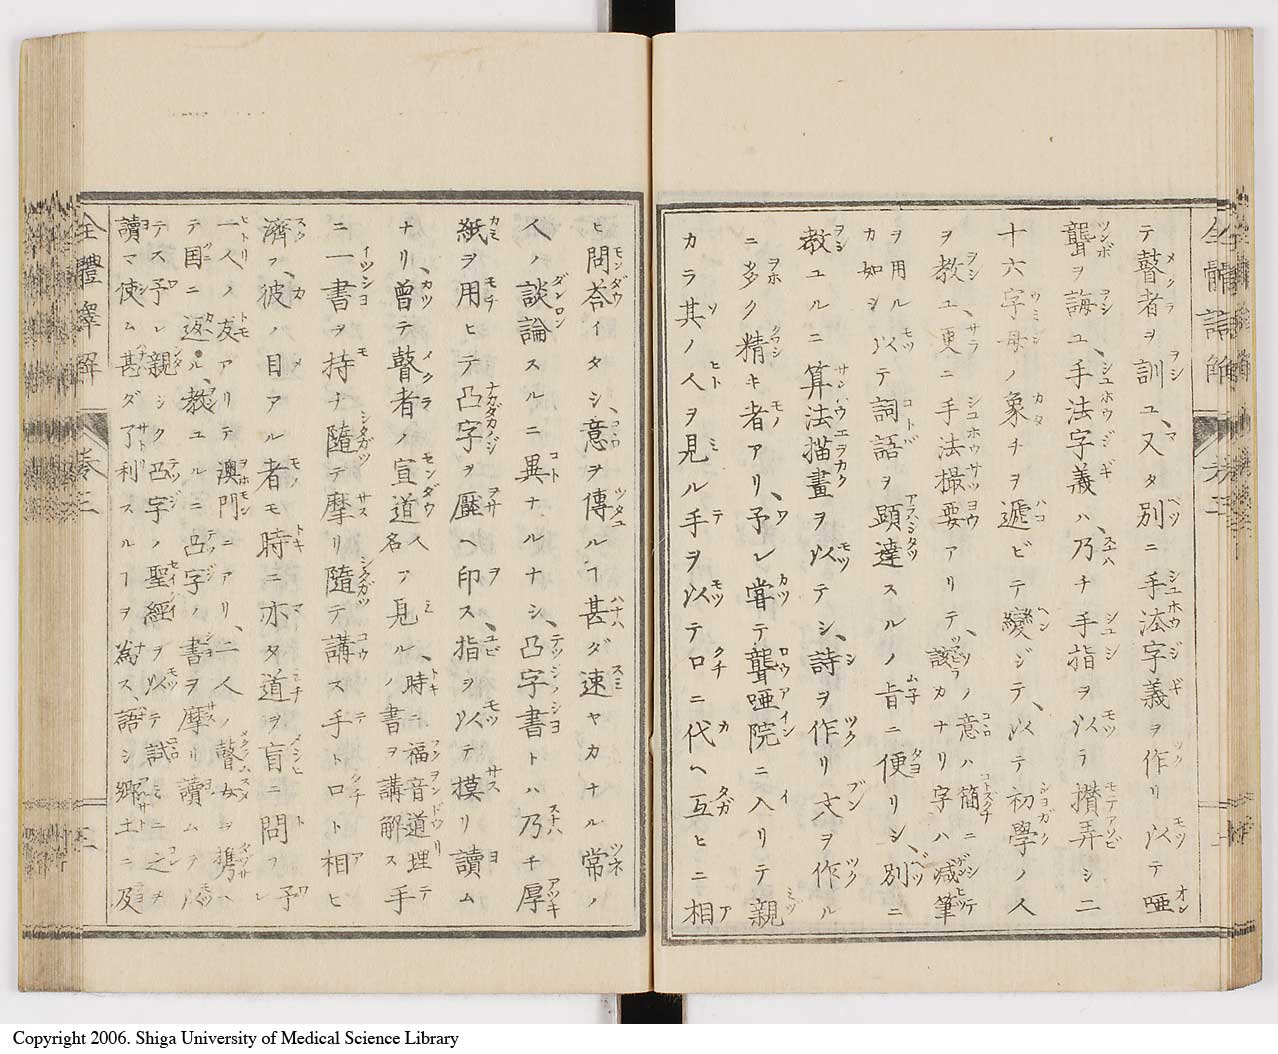 テ瞽者ヲ訓ユ、又タ別ニ手法字義ヲ作リ以テ唖
聾ヲ誨ユ、手法字義ハ、乃チ手指ヲ以テ攢弄シ二
十六字母ノ象チヲ遞ビテ變ジテ、以テ初學ノ人
ヲ教ユ、更ニ手法撮要アリテ、該カナリ字ハ減筆
意ハ簡ニ
ヲ用ル以テ詞語ヲ顕達スルノ旨ニ便リシ、別ニ
カ如シ
教ユルニ算法描畫ヲ以テシ、詩ヲ作リ文ヲ作ル
ニ多ク精キ者アリ、予レ嘗テ聾唖院ニ入リテ親
カラ其ノ人ヲ見ル手ヲ以テロニ代ヘ互ヒニ相
ヒ問荅イタシ、意ヲ傳ルヿ甚ダ速ヤカナル常ノ
人ノ談論スルニ異ナルナシ、凸字書トハ乃チ厚
紙ヲ用ヒテ凸字ヲ壓ヘ印ス、指ヲ以テ摸リ讀ム
ナリ、曾テ瞽者ノ宣道人名アヿ見ル、時ニ福音道理
ノ書ヲ講解ス手
ニ一書ヲ持ナ隨テ摩リ隨テ講ス手トロト相ヒ
濟フ、彼ハ目アル者モ時ニ亦タ道ヲ盲ニ問フ予
一人ノ友アリテ澳門ニアリ、二人ノ瞽女ヲ携ヘ
テ国ニ返ル、教ユルニ凸字ノ書ヲ摩リ讀ムヲ以
テス予レ親シク凸字ノ聖經ヲ以テ試ミニ之ヲ
讀マ使ム甚ダ了利スルヿヲ為ス、語シ郷土ニ及
全體譯解
巻三
三
Copyright 2006. Shiga University of Medical Science Library